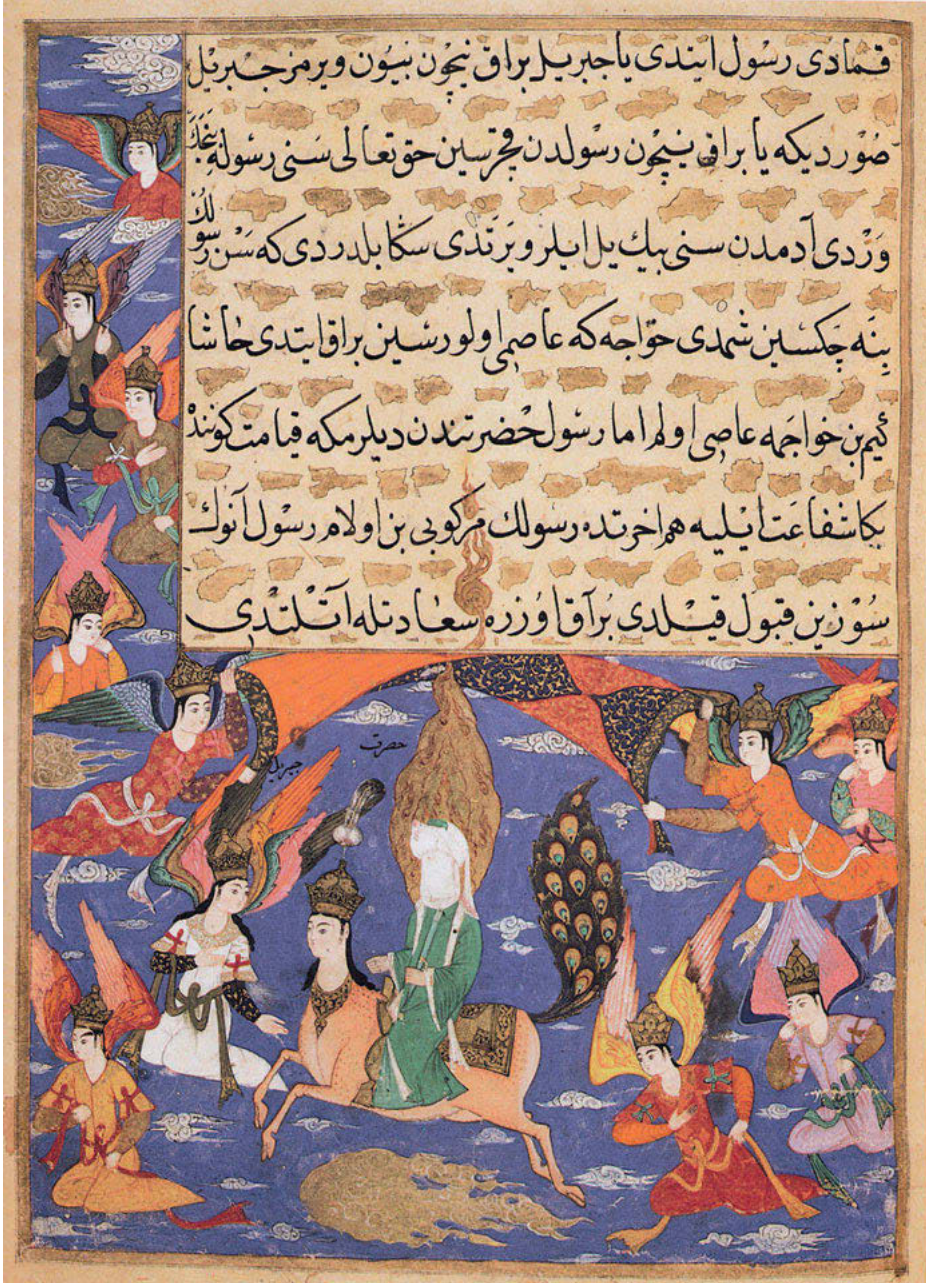 قمادی رسول ایتدی یا جبریل براق نیچون بیون ویرمز جبریل
صوردیکه یا براق نیچون رسولدن قچرسین حق تعالی سنی رسوله
وردی آدمدن سنی بیك یل ایلرو یرتدی سكا بلدردی که سن رسولك
بنه جكسین شمدی خواجه که عاصمی اولورسین براق ایتدی حاشا
کیم بن خواجمه عاصی اولم اما رسول حضرتندن دیلرمکه قیامت کوننده
بکا شفاعت ایلیه هم اخرتده رسولك مرکوبی بن اولام رسول آنوك
سوزین قبول قیلدی براق اوزره سعادتله اتلندی
حضرت
جبریل